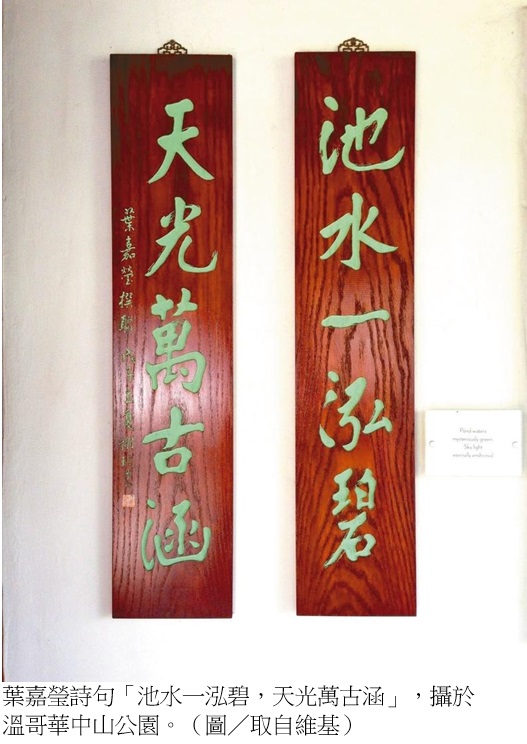 池水一泓碧
天光萬古涵
葉嘉瑩撰聯
Pond waters
mysteriously green
Sky light
eternally enshrined
葉嘉瑩詩句「池水一泓碧，天光萬古涵」，攝於
溫哥華中山公園。（圖／取自維基）